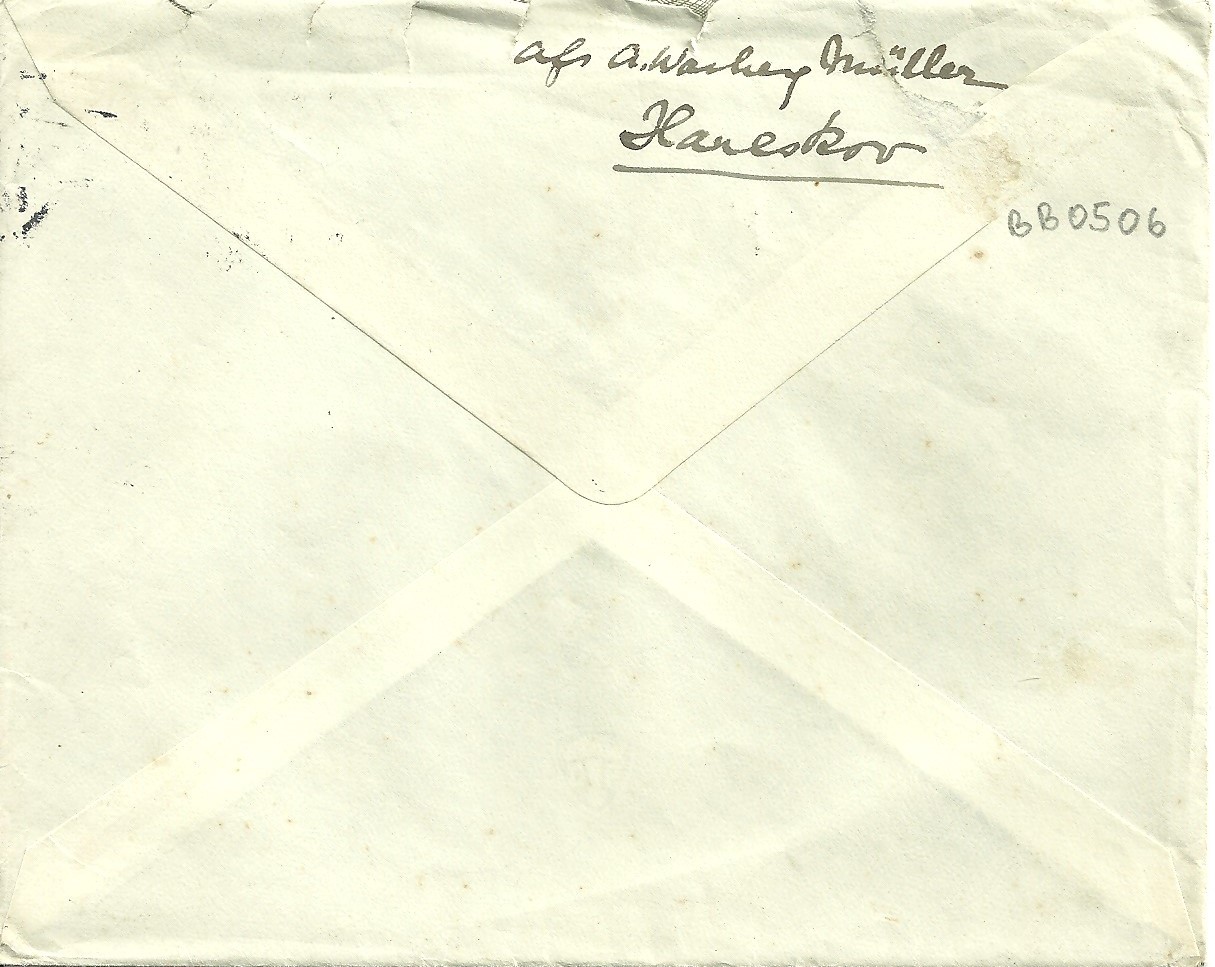 Afs A. Warberg Müller
Hareskov
BB0506